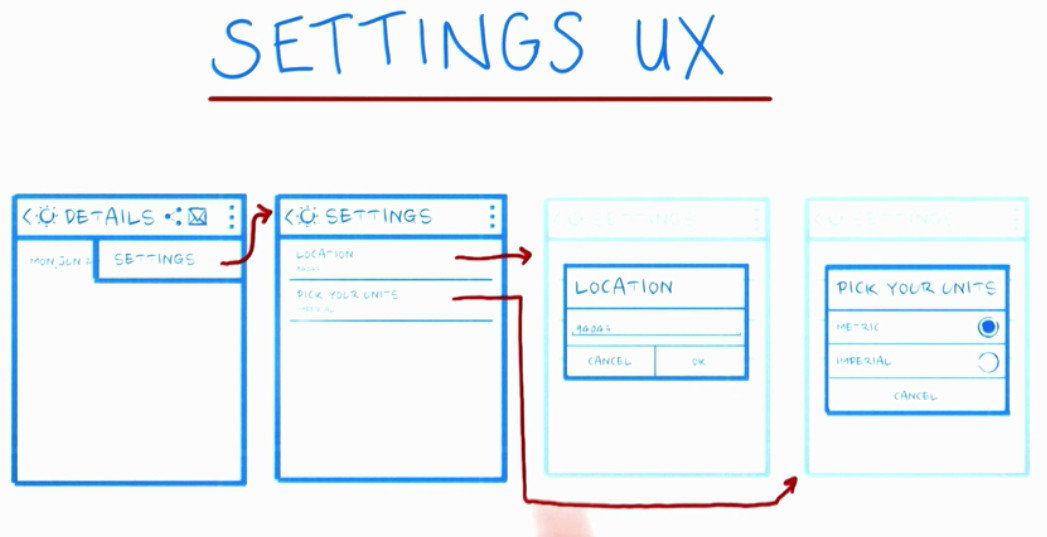 SETTINGS UX
< DETAILS
MON, JUN 2
SETTINGS
< SETTINGS
LOCATION
PICK YOUR UNITS
IMPERIAL
SETTINGS
LOCATION
CANCEL OK
SETTINGS
PICK YOUR UNITS
METRIC
IMPERIAL
CANCEL